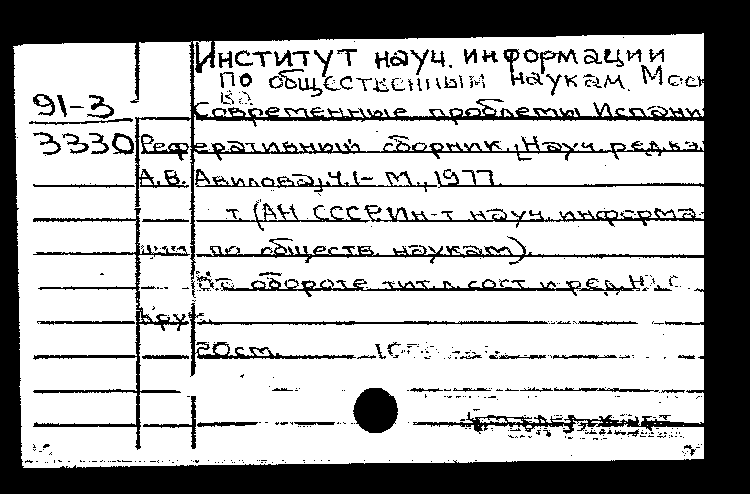 Институт науч. информации
по общественным наукам. Моск
ва
91-3
Современные проблемы Испани
3330 Реферативный сборник. [Науч. ред. кэ
А.В. Авилова]. Ч.1- М., 1977.
т. (АН СССР. Ин-т науч. информа-
ции по обществ. наукам).
На обороте тит. л. сост. и ред. Ю. С.
Крук.
20см.